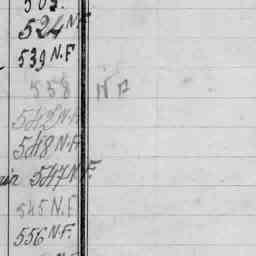 524 N.F
539 N.F
558 N F
542 N.F
548 N.F
547 N.F.
545 N.F.
556 N.F.